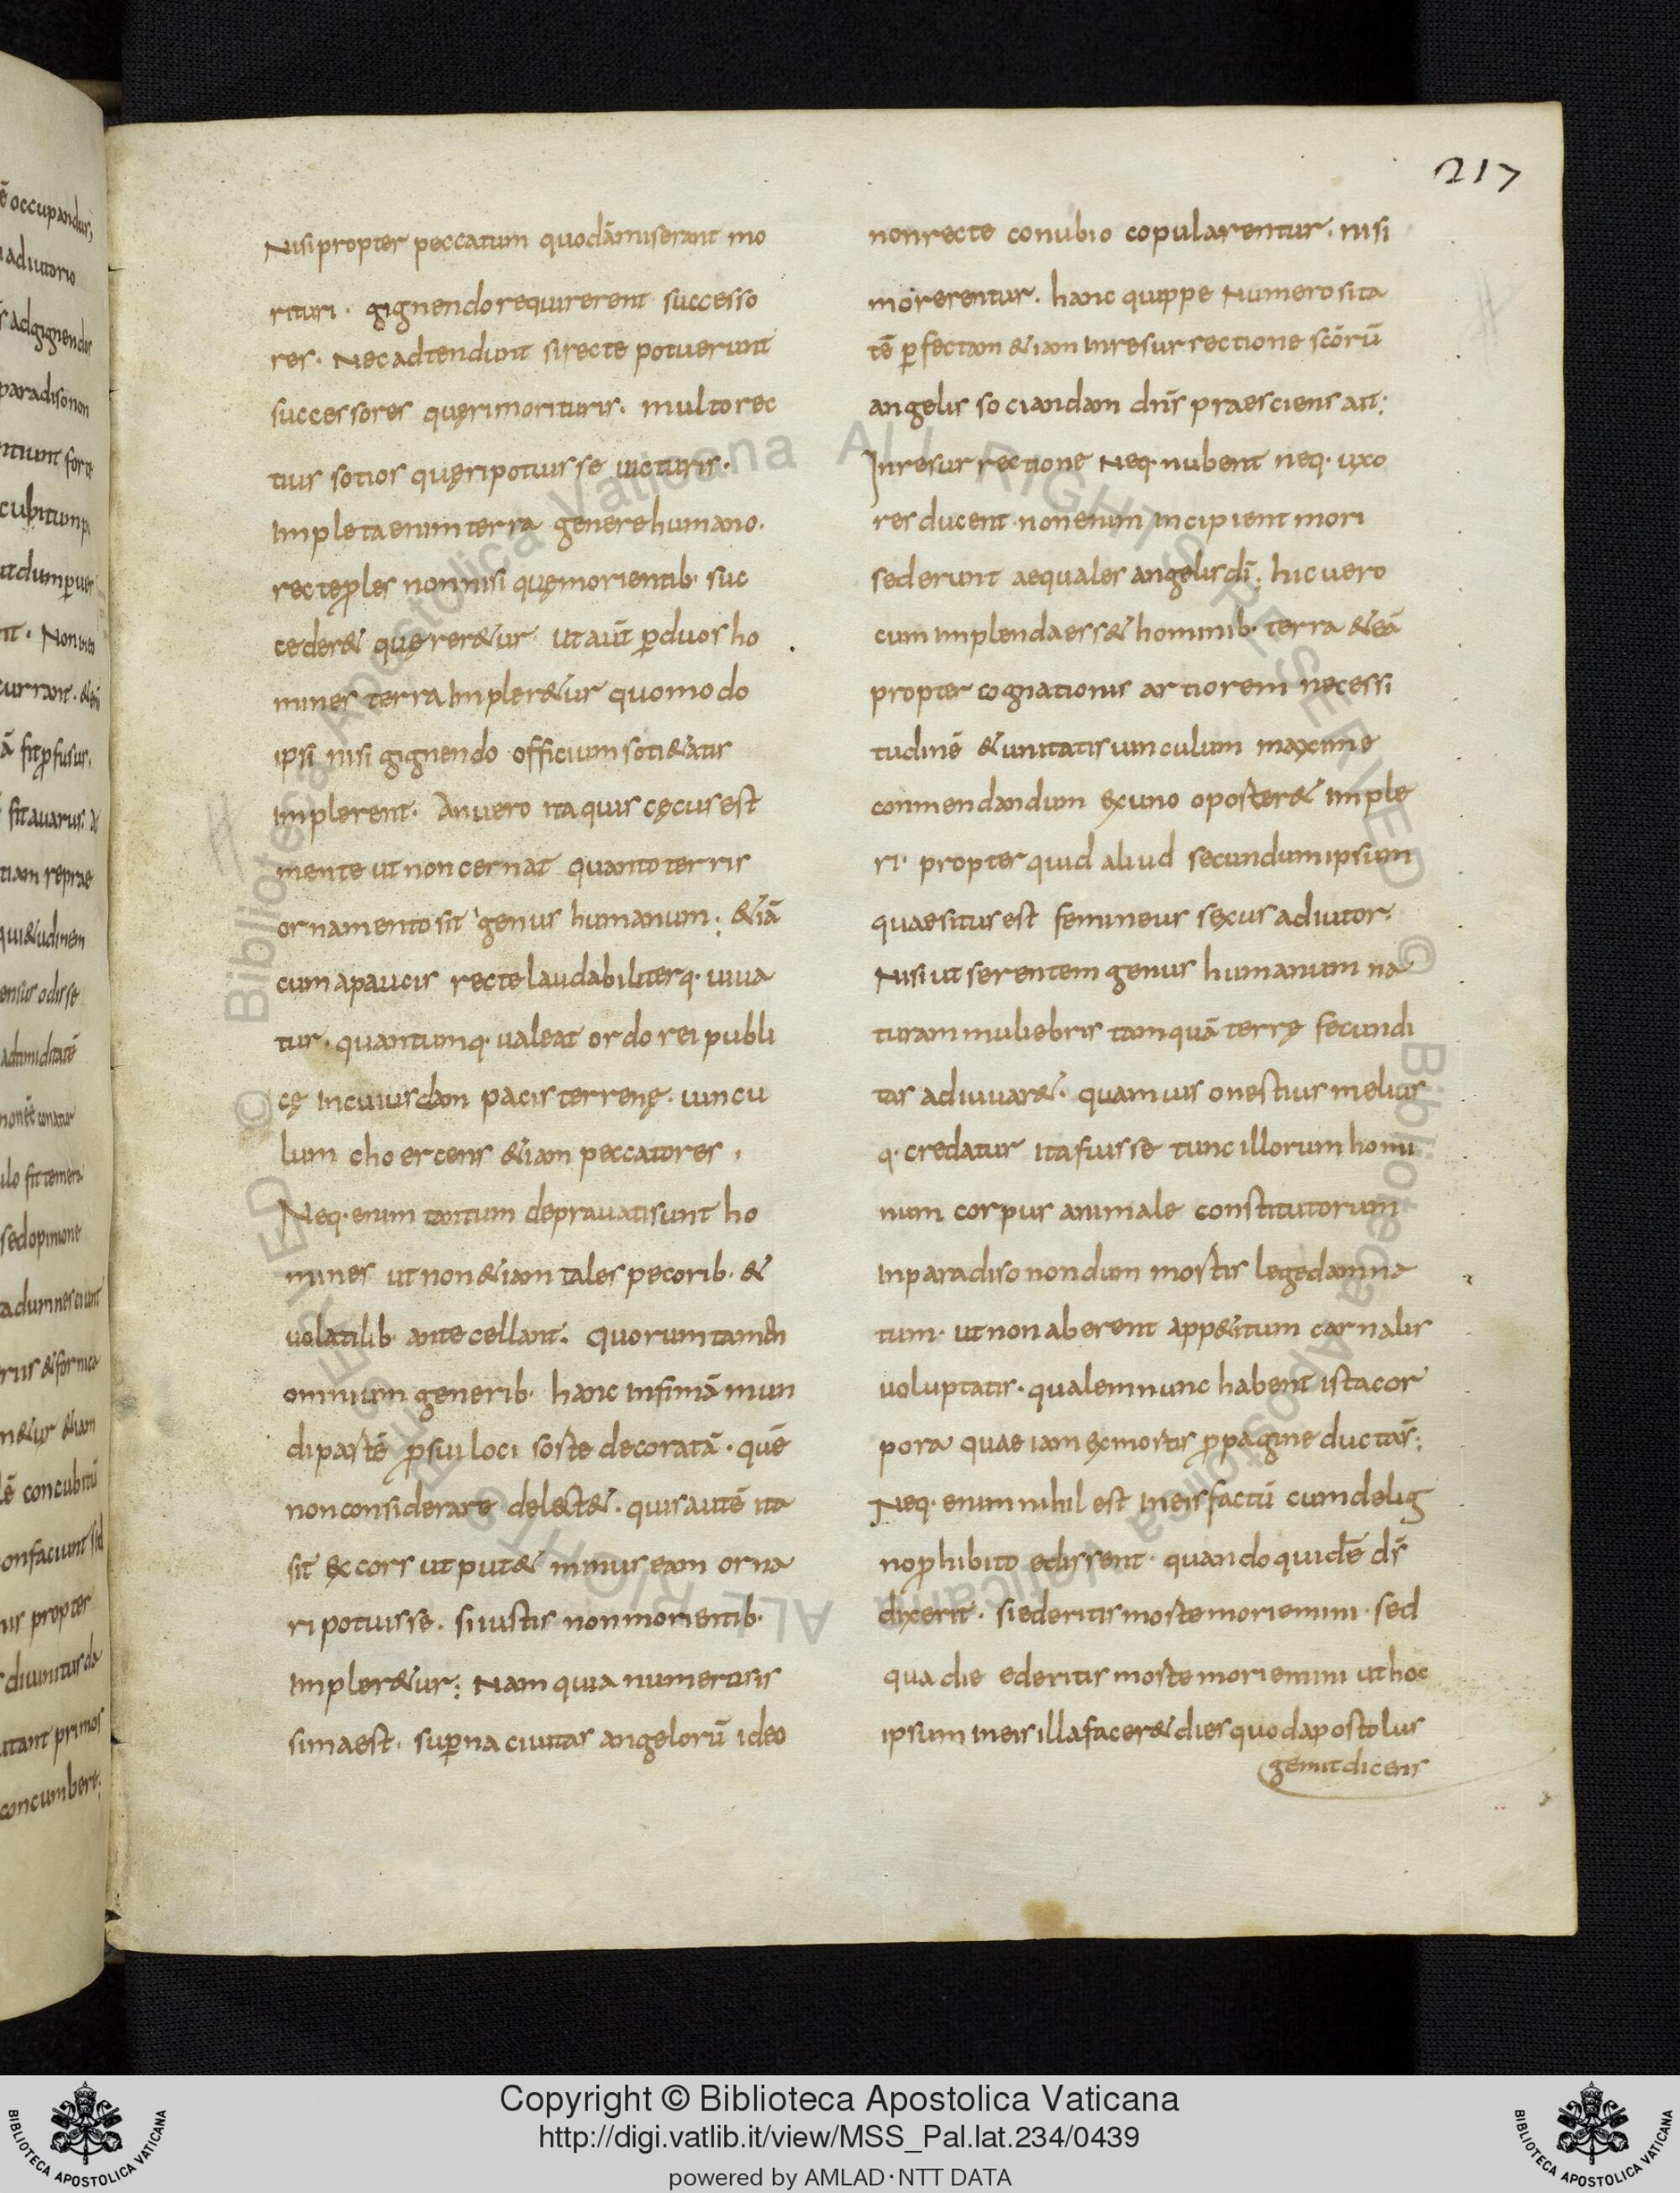 217
Nisi propter peccatum quodāmiserant mo
rituri · gignendo requirerent successo
res · Nec adtendunt si recte potuerunt
successores quęri morituris · multo rec
tius sotios quęri potuisse uicturis ·
Impleta enim terra genere humano ·
recte ꝓles non nisi quę morientib· suc
ceder& quęrer&ur · ut aūt ꝑ duos ho
mines terra Impler&ur quomodo
ipsi nisi gignendo officium soti&atis
Implerent · An uero ita quis cęcus est
mente ut non cernat quanto terris
ornamento sit genus humanum ; &iā
cum a paucis recte laudabiliterq· uiua
tur · quantumq· ualeat ordo rei publi
cę In cuiusdam pacis terrenę · uincu
lum choercens &iam peccatores ·
Neq· enim tantum deprauati sunt ho
mines ut non &iam tales pecorib· &
uolatilib· antecellant · quorum tamen
omnium generib· hanc Infimā mun
di partē ꝑ sui loci sorte decoratā · quē
non considerare delect& · quis autē ita
sit excors ut put& minus eam orna
ri potuisse · si iustis non morientib·
Impler&ur ; Nam quia numerosis
sima est · suꝑna ciuitas angelorū ideo
non recte conubio copularentur · nisi
morerentur · hanc quippe Numerosita
tē ꝑfectam &iam In resurrectione scōrū
angelis sociandam dn̄s praesciens ait ;
In resurrectione Neq· nubent neq· uxo
res ducent · non enim Incipient mori
sed erunt aequales angelis dī ; hic uero
cum Implenda ess& hominib· terra & eā
propter cognationis artiorem necessi
tudinē & unitatis uinculum maxime
conmendandum ex uno oporter& Imple
ri · propter quid aliud secundum ipsum
quaesitus est femineus sexus adiutor ·
Nisi ut serentem genus humanum na
tura muliebris tamquā terrę fecundi
tas adiuuar& · quamuis onestius melius
q· credatur ita fuisse tunc illorum homi
num corpus animale constitutorum
In paradiso nondum mortis lege damna
tum · ut non aberent app&itum carnalis
uoluptatis · qualem nunc habent ista cor
pora quae iam ex mortis ꝓpagine ducta s̄ ;
Neq· enim nihil est In eis factū cum de lig
no ꝓhibito edissent · quando quidē d̄s
dixerit · si ederitis morte moriemini · sed
qua die ederitis morte moriemini ut hoc
ipsum In eis illa facer& dies quod apostolus
gemit dicens
Copyright © Biblioteca Apostolica Vaticana
http://digi.vatlib.it/view/MSS_Pal.lat.234/0439
powered by AMLAD·NTT DATA
BIBLIOTECA APOSTOLICA VATICANA
BIBLIOTECA APOSTOLICA VATICANA